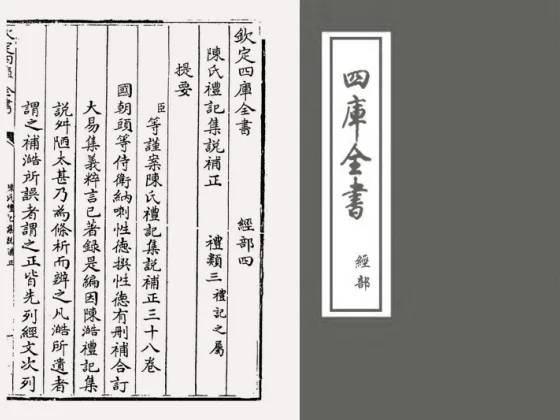 欽定四庫全書 經部四
陳氏禮記集說補正 禮類三禮記之屬
提要
臣等謹案陳氏禮記集說補正三十八卷
國朝頭等侍衛納喇性德撰性德有刪補合訂
大易集義粹言已著錄是編因陳澔禮記集
說舛陋太甚乃為條析而辨之凡澔所遺者
謂之補澔所誤者謂之正皆先列經文次列
欽定四庫全書
陳氏禮記集說補正
四庫全書
經部